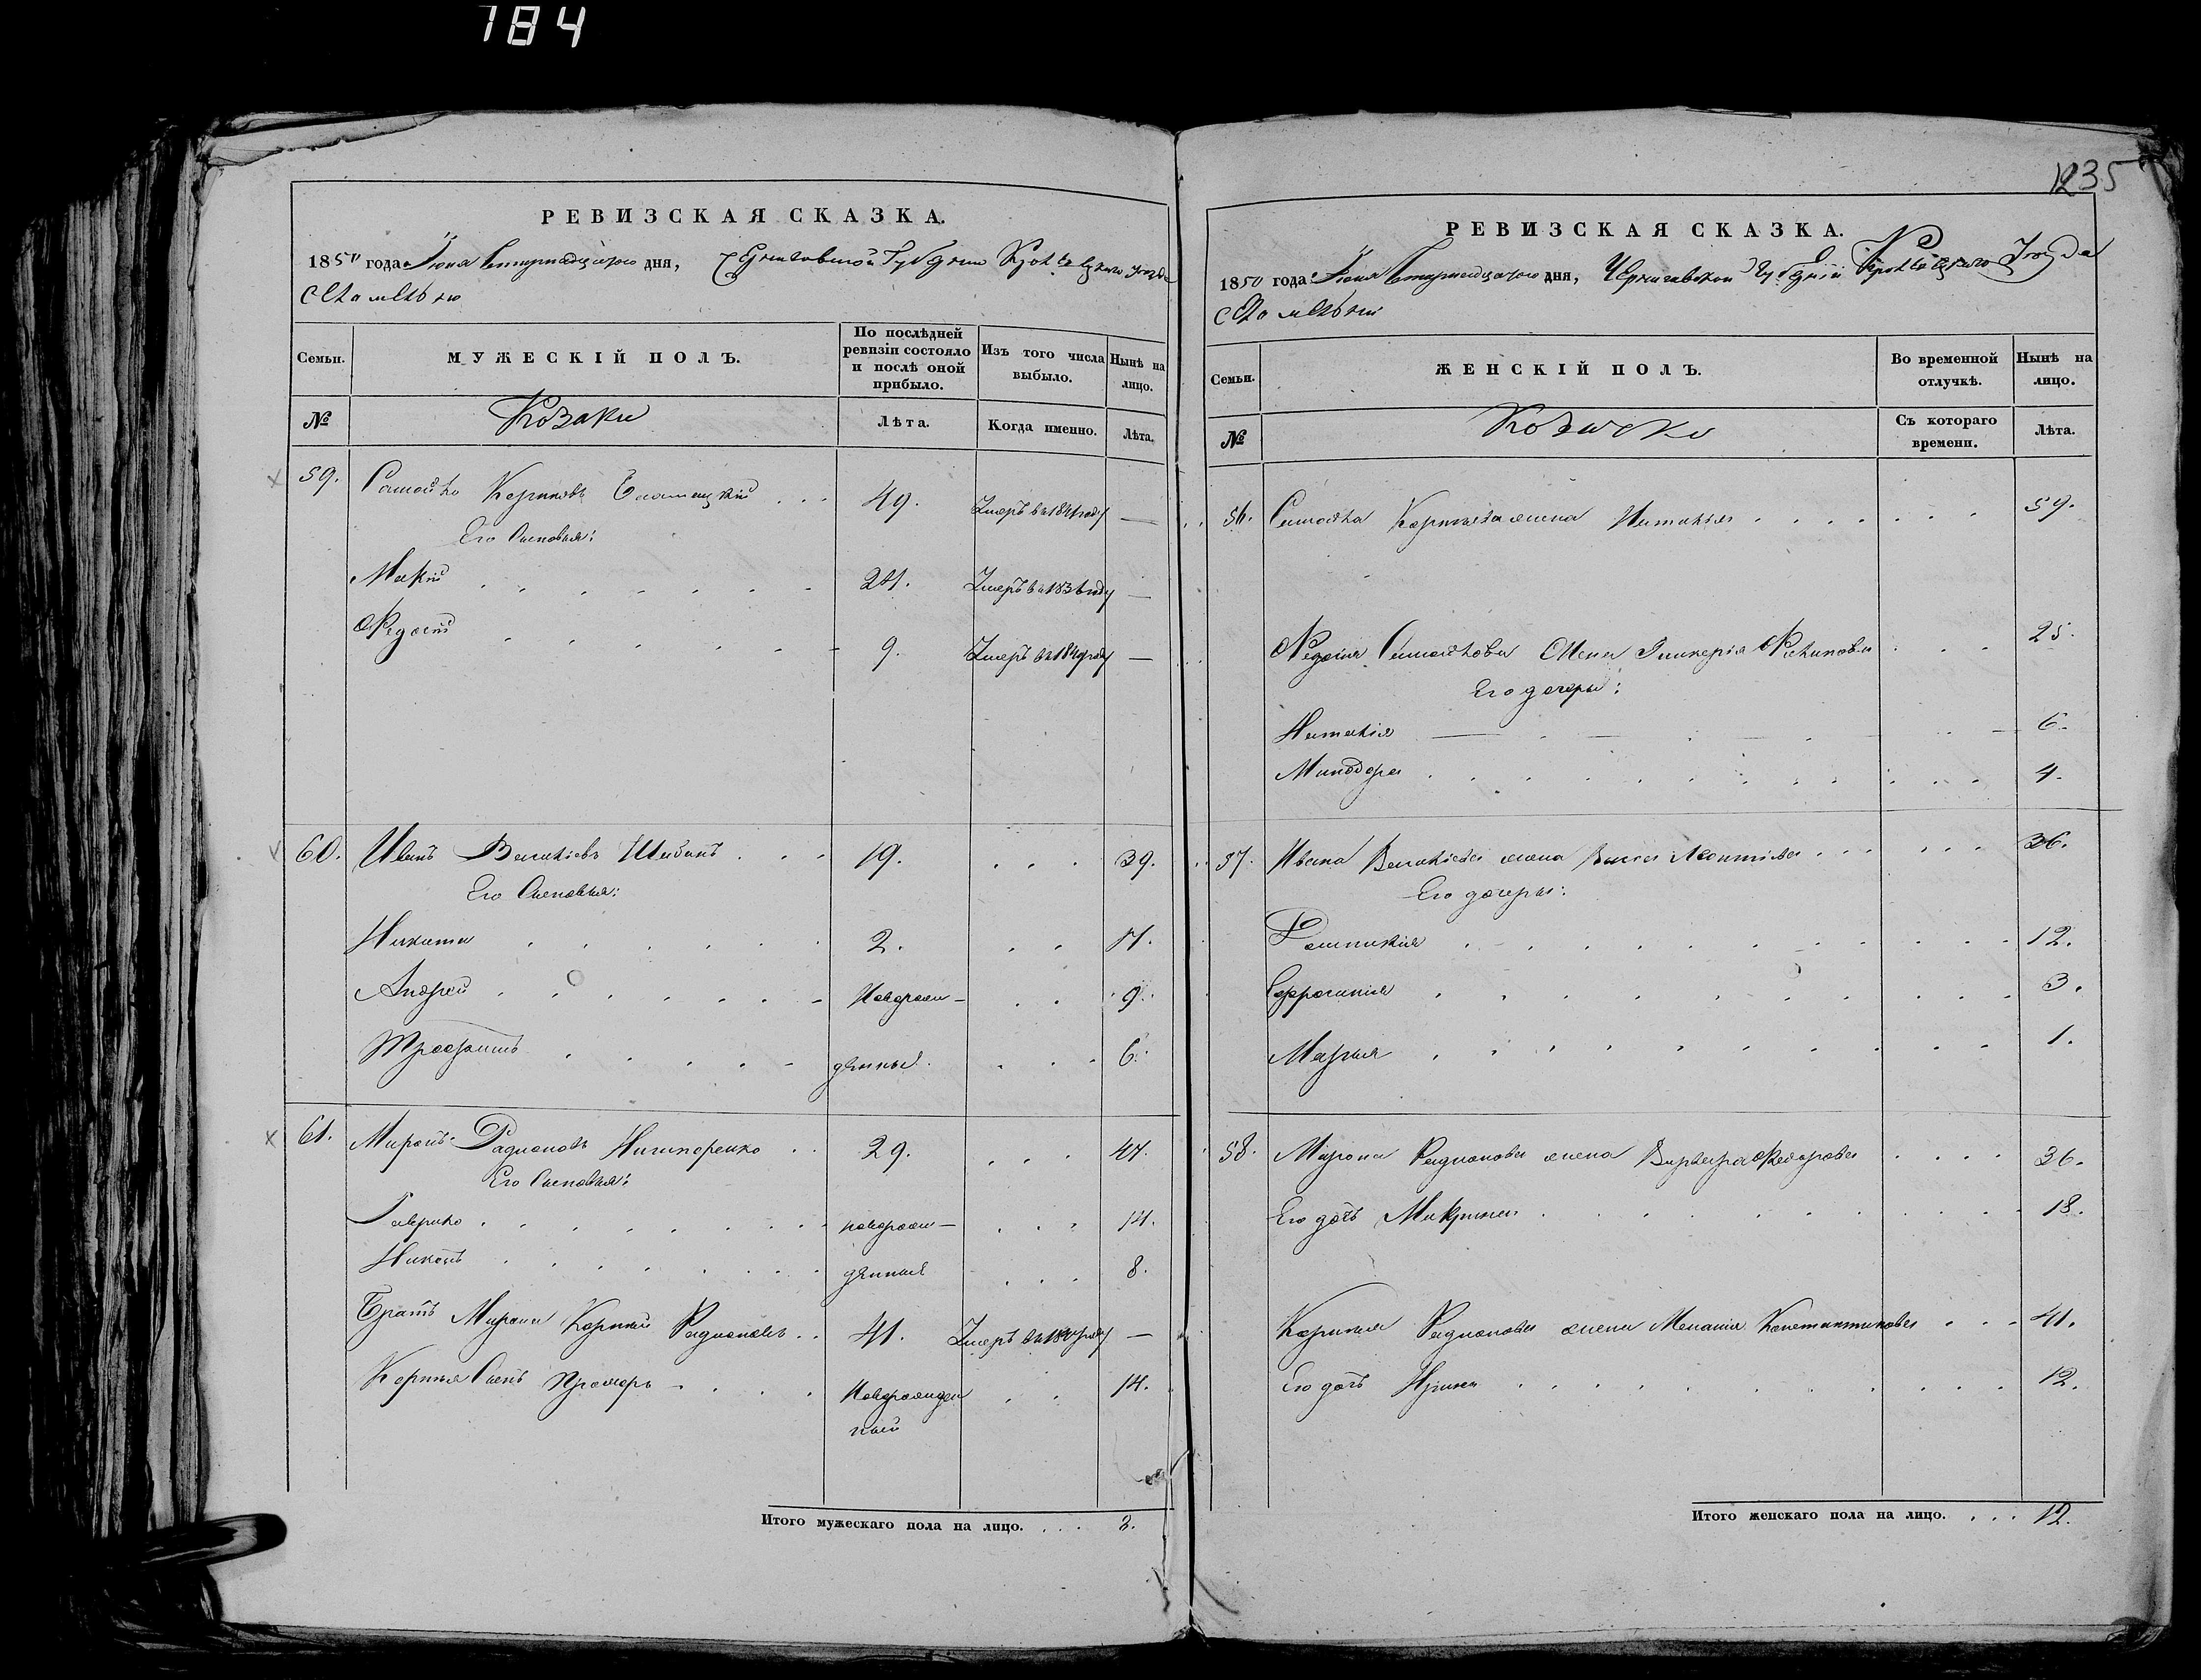 784
1235
РЕВИЗСКАЯ СКАЗКА.
1850 года Іюня дня, Черниговской Губерніи Кролевецкаго Уѣзда
Семьи.
МУЖЕСКІЙ ПОЛЪ.
По послѣдней ревизіи состояло и послѣ оной прибыло.
Изъ того числа выбыло.
Нынѣ на лицо.
№
Козаки
Лѣта.
Когда именно.
Лѣта.
59. Самойло Карповъ 49. Умеръ въ 184 году —
Его Сыновья:
Умеръ въ 183 году —
Федосій 9. Умеръ въ 184 году —
60. Иванъ Васильевъ 19. 39.
Его Сыновья:
Никита 2.
Андрей новорож- 9.
Трофимъ денныя 6.
61. Миронъ Радионовъ Ничипоренко 29.
Его Сыновья:
Гаврило новорож- 14.
Никонъ денныя 8.
Братъ Мирона Карпъ Радионовъ 41. Умеръ въ году —
Карпа Сынъ Прохоръ Новорожден 14.
ный
Итого мужескаго пола на лицо. 8.
РЕВИЗСКАЯ СКАЗКА.
1850 года Іюня дня, Черниговской Губерніи Кролевецкаго Уѣзда
Семьи.
ЖЕНСКІЙ ПОЛЪ.
Во временной отлучкѣ.
Нынѣ на лицо.
№
Съ котораго времени.
Лѣта.
56. Самойла Карпова жена Наталія 59.
Федосія Самойлова жена Гликерія 25.
Его дочери:
Наталія 6.
Минодора 4.
57. Ивана Васильева жена Леонтіева 36.
Его дочери:
12.
Ефросинія 3.
Марья 1.
58. Мирона Радионова жена Варвара Федорова 36.
Его дочь Макрина 18.
Карпа Радионова жена Меланія Константинова 41.
Его дочь Ирина 12.
Итого женскаго пола на лицо. 12.